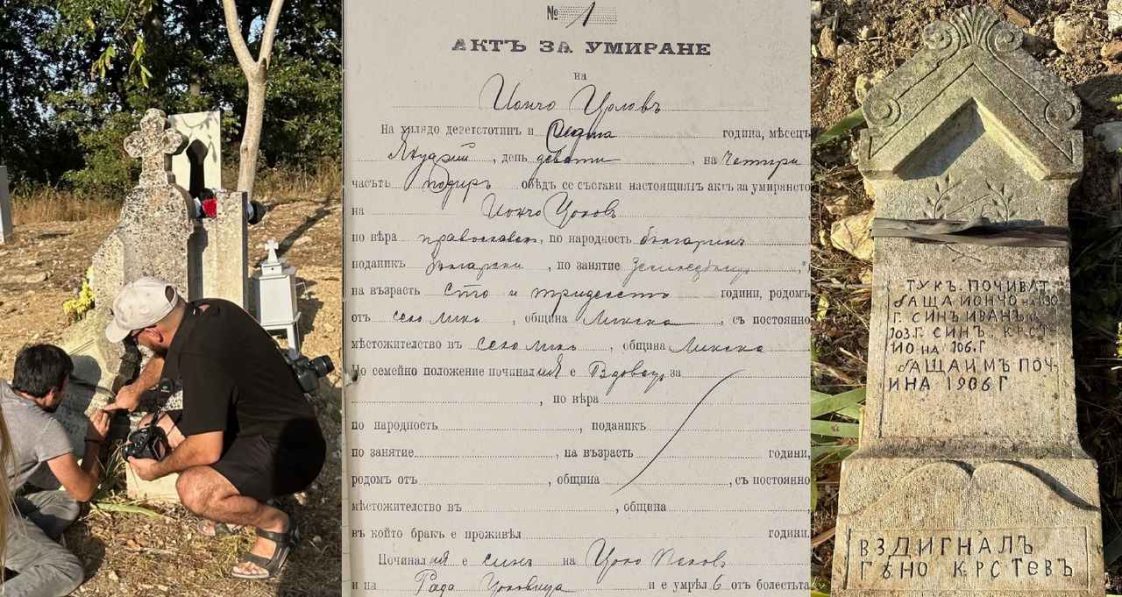 № 1
АКТЪ ЗА УМИРАНЕ
на
Йончо
На хилядо деветстотинъ и седма година, мѣсецъ
Януарий, день девети, на четири
часътъ подиръ обѣдъ се състави настоящиятъ актъ за умирането
на Йончо Цоковъ
по вѣра православенъ, по народность българинъ
поданикъ български, по занятие земледѣлецъ,
на възрасть сто и тридесеть години, родомъ
отъ село община съ постоянно
мѣстожителство въ село община
По семейно положение починалия е вдовецъ за
, по вѣра
по народность , поданикъ
по занятие , на възрасть години,
родомъ отъ , община , съ постоянно
мѣстожителство въ , община
въ който бракъ е проживѣлъ години.
Починалия е синъ на Цоко
и на Рада Цоковица и е умрѣлъ отъ болестьта
ТУКЪ. ПОЧИВАТ
БАЩА ЙОНЧО НА 130
Г. СИНЪ ИВАНЪ
103 Г. СИН. КРСТ-
ЮО НА 106. Г
БАЩА ИМЪ ПОЧ-
ИНА 1906 Г
ВЗДИГНАЛЪ
ГѢНО КРСТЕВЪ